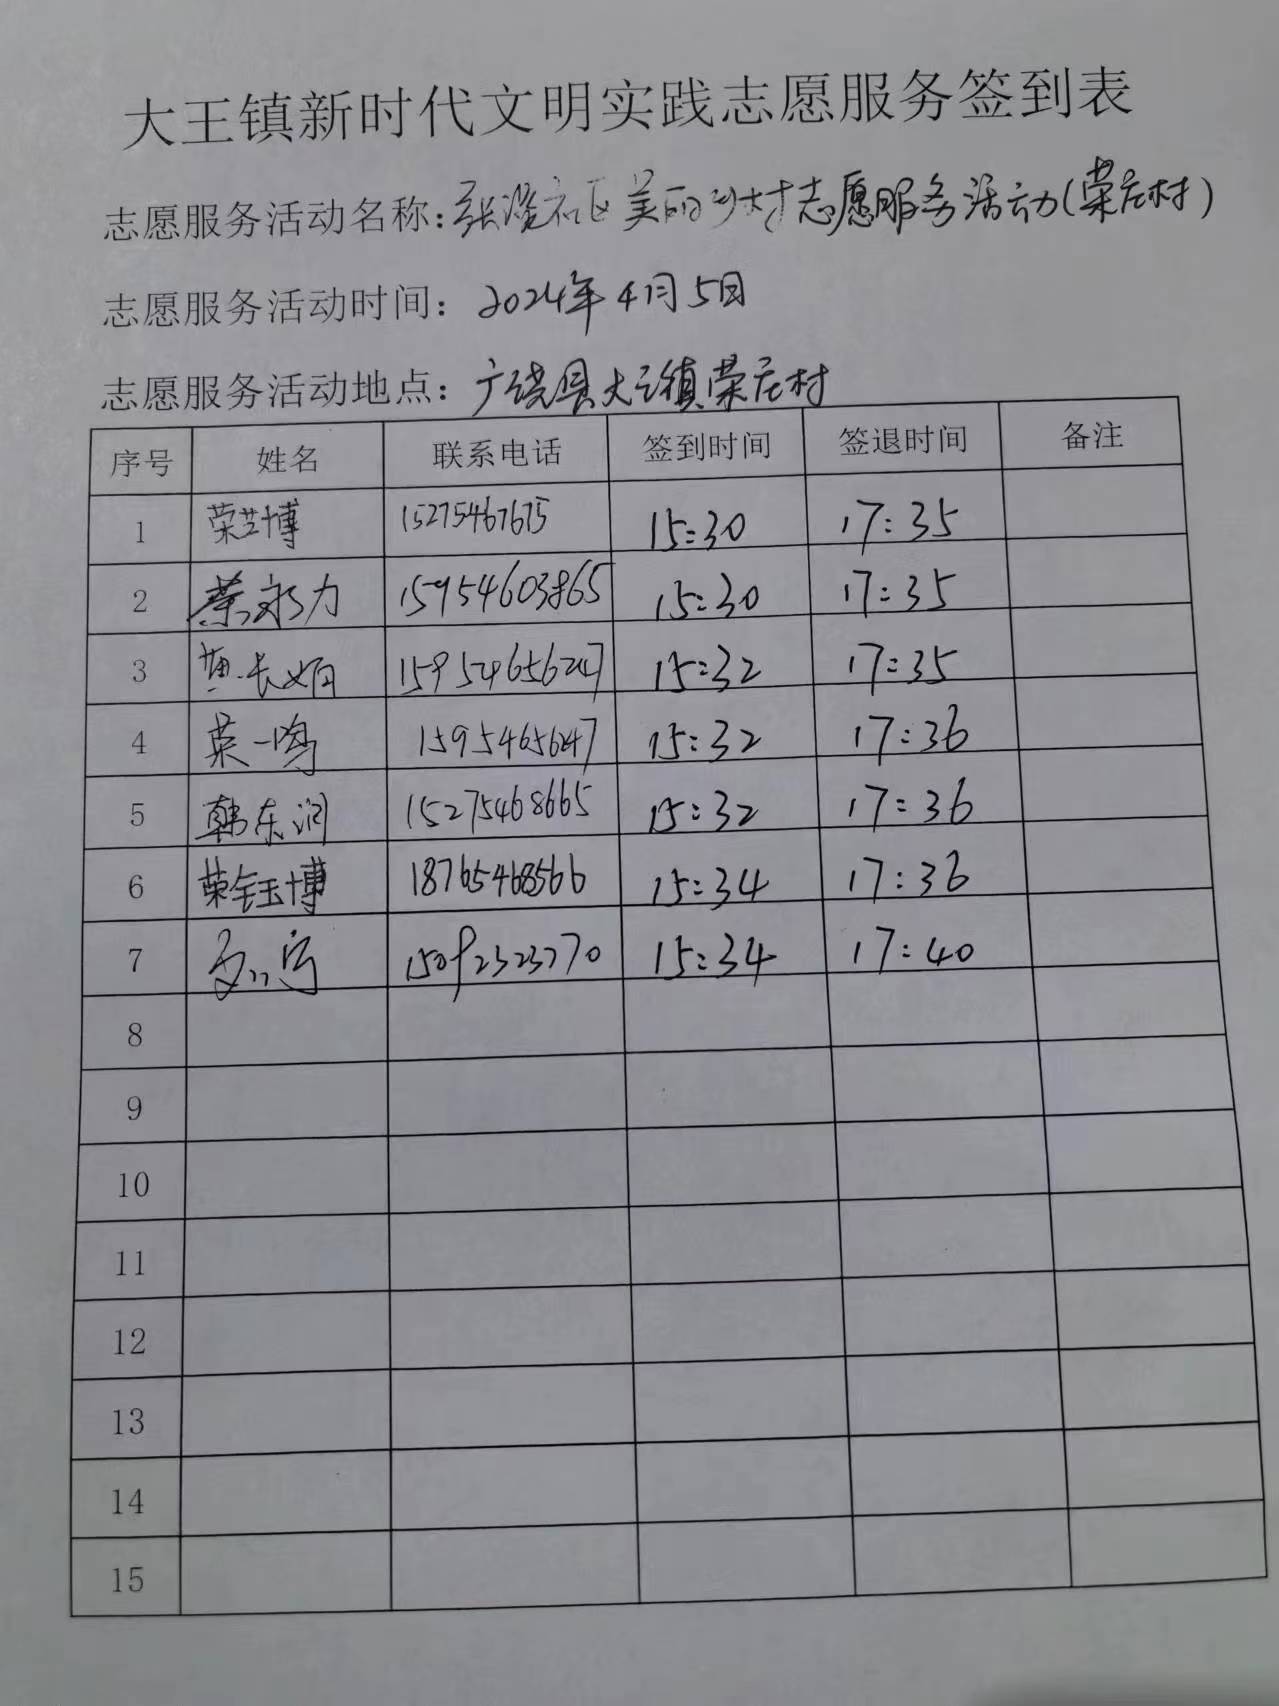 大王镇新时代文明实践志愿服务签到表
志愿服务活动名称:张淡社区美丽乡村志愿服务活动(荣庄村)
志愿服务活动时间：2024年4月5日
志愿服务活动地点：广饶县大王镇荣庄村
序号 姓名 联系电话 签到时间 签退时间 备注
1 荣芝博 15275467675 15:30 17:35
2 荣永力 15954603865 15:30 17:35
3 长娟 15954656247 15:32 17:35
4 荣一鸣 15954656247 15:32 17:36
5 韩东润 15275468665 15:32 17:36
6 荣钰博 18765468566 15:34 17:36
7 15092323770 15:34 17:40
8
9
10
11
12
13
14
15